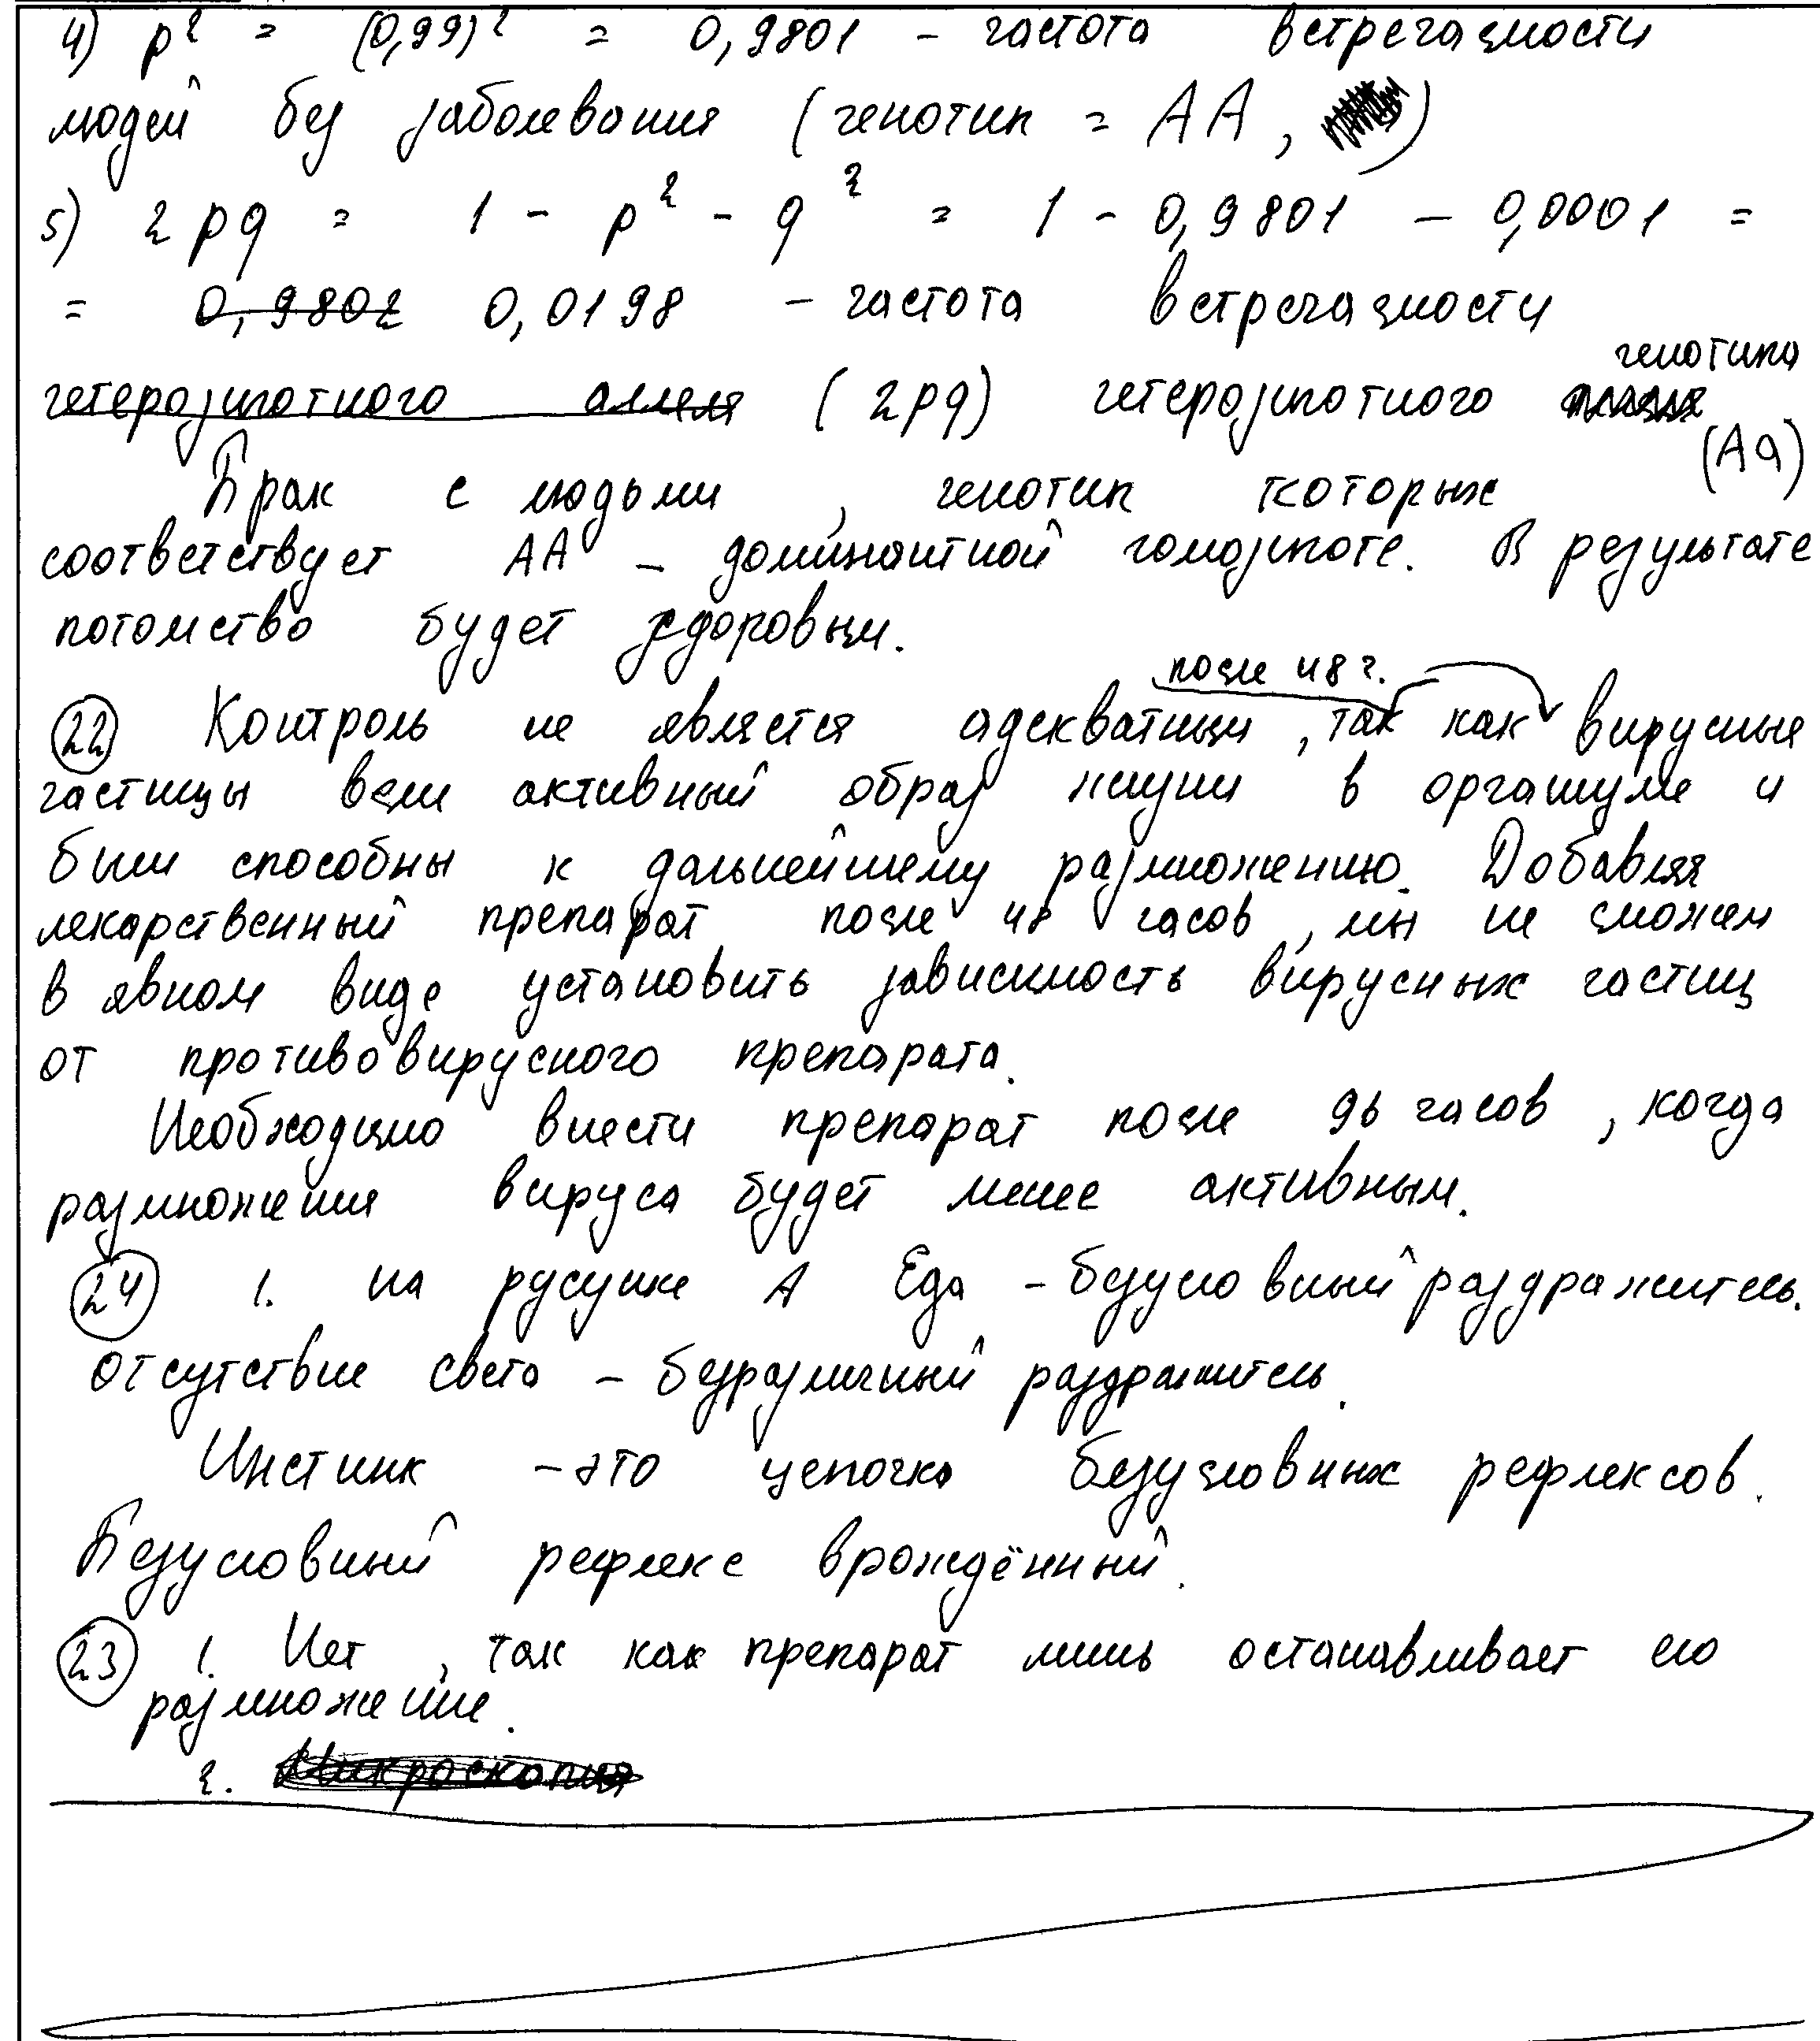 4) p² = (0,99)² = 0,9801 - частота встречаемости
людей без заболевания (генотип = АА, )
5) 2pq = 1 - p² - q² = 1 - 0,9801 - 0,0001 =
= 0,9802 0,0198 - частота встречаемости
гетерозиготного аллеля (2pq) гетерозиготного генотипа
(Аа)
Брак с людьми, генотип которых
соответствует АА - доминантной гомозиготе. В результате
потомство будет здоровым.
после 48 ч.
22 Контроль не является адекватным, так как вирусные
частицы вели активный образ жизни в организме и
были способны к дальнейшему размножению. Добавляя
лекарственный препарат после 48 часов, мы не сможем
в явном виде установить зависимость вирусных частиц
от противовирусного препарата.
Необходимо внести препарат после 96 часов, когда
размножения вируса будет менее активным.
24 1. на русунке А Еда - безусловный раздражитель.
отсутствие света - безразличный раздражитель.
Инстинк - это цепочка безусловных рефлексов.
Безусловный рефлекс врождённый.
23 1. Нет, так как препарат лишь останавливает его
размножение.
2. Микроскопия